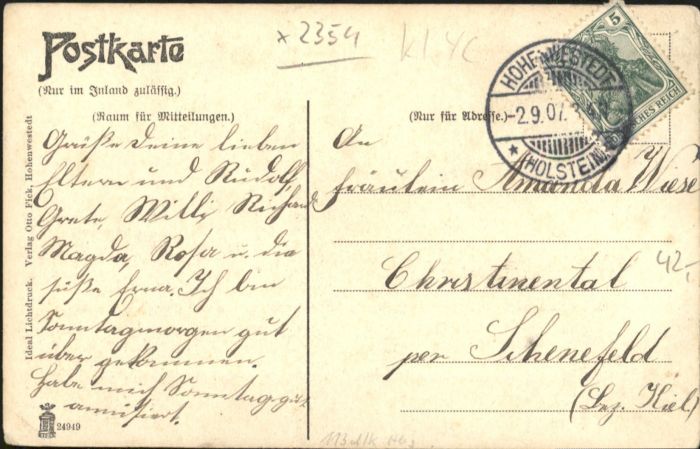 Postkarte
(Nur im Inland zulässig.)
(Raum für Mitteilungen.)
Grüße Deine lieben
Eltern und Rudolf,
Grete, Willi, Richard
Magda, Rosa u. die
süße Erna. Ich bin
Sonntagmorgen gut
über gekommen.
Habe mich Sonntag gut
amüsiert.
24949
Ideal Lichtdruck. Verlag Otto Fick, Hohenwestedt
x 2354
kl YC
(Nur für Adresse.)
HOHENWESTEDT
-2.9.07.
* (HOLSTEIN)
5
DEUTSCHES REICH
An
Fräulein Amanda Wiese
Christinental
per Schenefeld
(Bez. Kiel)
42,-